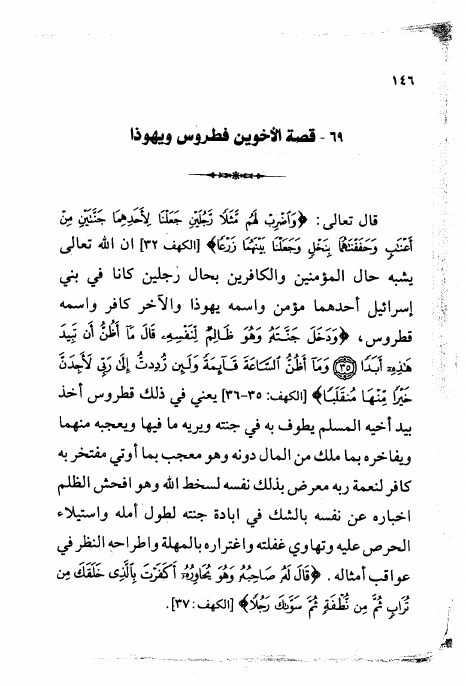 ١٤٦
٦٩ - قصة الأخوين فطروس ويهوذا
قال تعالى: ﴿وَاضْرِبْ لَهُم مَّثَلًا رَّجُلَيْنِ جَعَلْنَا لِأَحَدِهِمَا جَنَّتَيْنِ مِنْ
أَعْنَابٍ وَحَفَفْنَاهُمَا بِنَخْلٍ وَجَعَلْنَا بَيْنَهُمَا زَرْعًا﴾ [الكهف ٣٢] ان الله تعالى
يشبه حال المؤمنين والكافرين بحال رجلين كانا في بني
إسرائيل أحدهما مؤمن واسمه يهوذا والآخر كافر واسمه
قطروس، ﴿وَدَخَلَ جَنَّتَهُ وَهُوَ ظَالِمٌ لِّنَفْسِهِ قَالَ مَا أَظُنُّ أَن تَبِيدَ
هَٰذِهِ أَبَدًا ﴿٣٥﴾ وَمَا أَظُنُّ السَّاعَةَ قَائِمَةً وَلَئِن رُّدِدتُّ إِلَىٰ رَبِّي لَأَجِدَنَّ
خَيْرًا مِّنْهَا مُنقَلَبًا﴾ [الكهف: ٣٥-٣٦] يعني في ذلك قطروس أخذ
بيد أخيه المسلم يطوف به في جنته ويريه ما فيها ويعجبه منهما
ويفاخره بما ملك من المال دونه وهو معجب بما أوتي مفتخر به
كافر لنعمة ربه معرض بذلك نفسه لسخط الله وهو افحش الظلم
اخباره عن نفسه بالشك في ابادة جنته لطول أمله واستيلاء
الحرص عليه وتهاوي غفلته واغتراره بالمهلة واطراحه النظر في
عواقب أمثاله. ﴿قَالَ لَهُ صَاحِبُهُ وَهُوَ يُحَاوِرُهُ أَكَفَرْتَ بِالَّذِي خَلَقَكَ مِن
تُرَابٍ ثُمَّ مِن نُّطْفَةٍ ثُمَّ سَوَّاكَ رَجُلًا﴾ [الكهف: ٣٧].